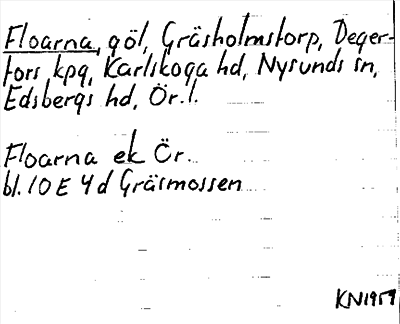 Floarna, göl, Gräsholmstorp, Deger-
fors kpg, Karlskoga hd, Nysunds sn,
Edsbergs hd, Ör. l.
Floarna ek Ör.
bl. 10 E 4 d Gräsmossen
KN1959